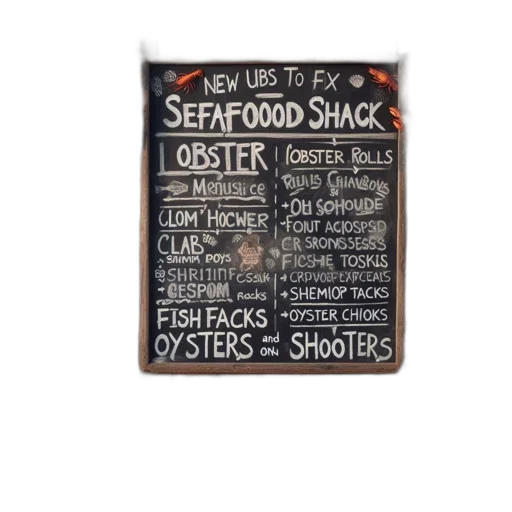 NEW UBS TO FX
SEFAFOOOD SHACK
LOBSTER
Menuslice
CLOM' HOCWER
CLAB
SHIMM POYS
SHRITINF
CESPOM ROCKS
FISH FACKS
OYSTERS and ON
LOBSTER ROLLS
OLI SOHOUDE
FOUT ACIOSPSD
CR SRONSSESSS
FICSHE TOSKLS
SHEMIOP TACKS
OYSTER CHIOKS
SHOOTERS